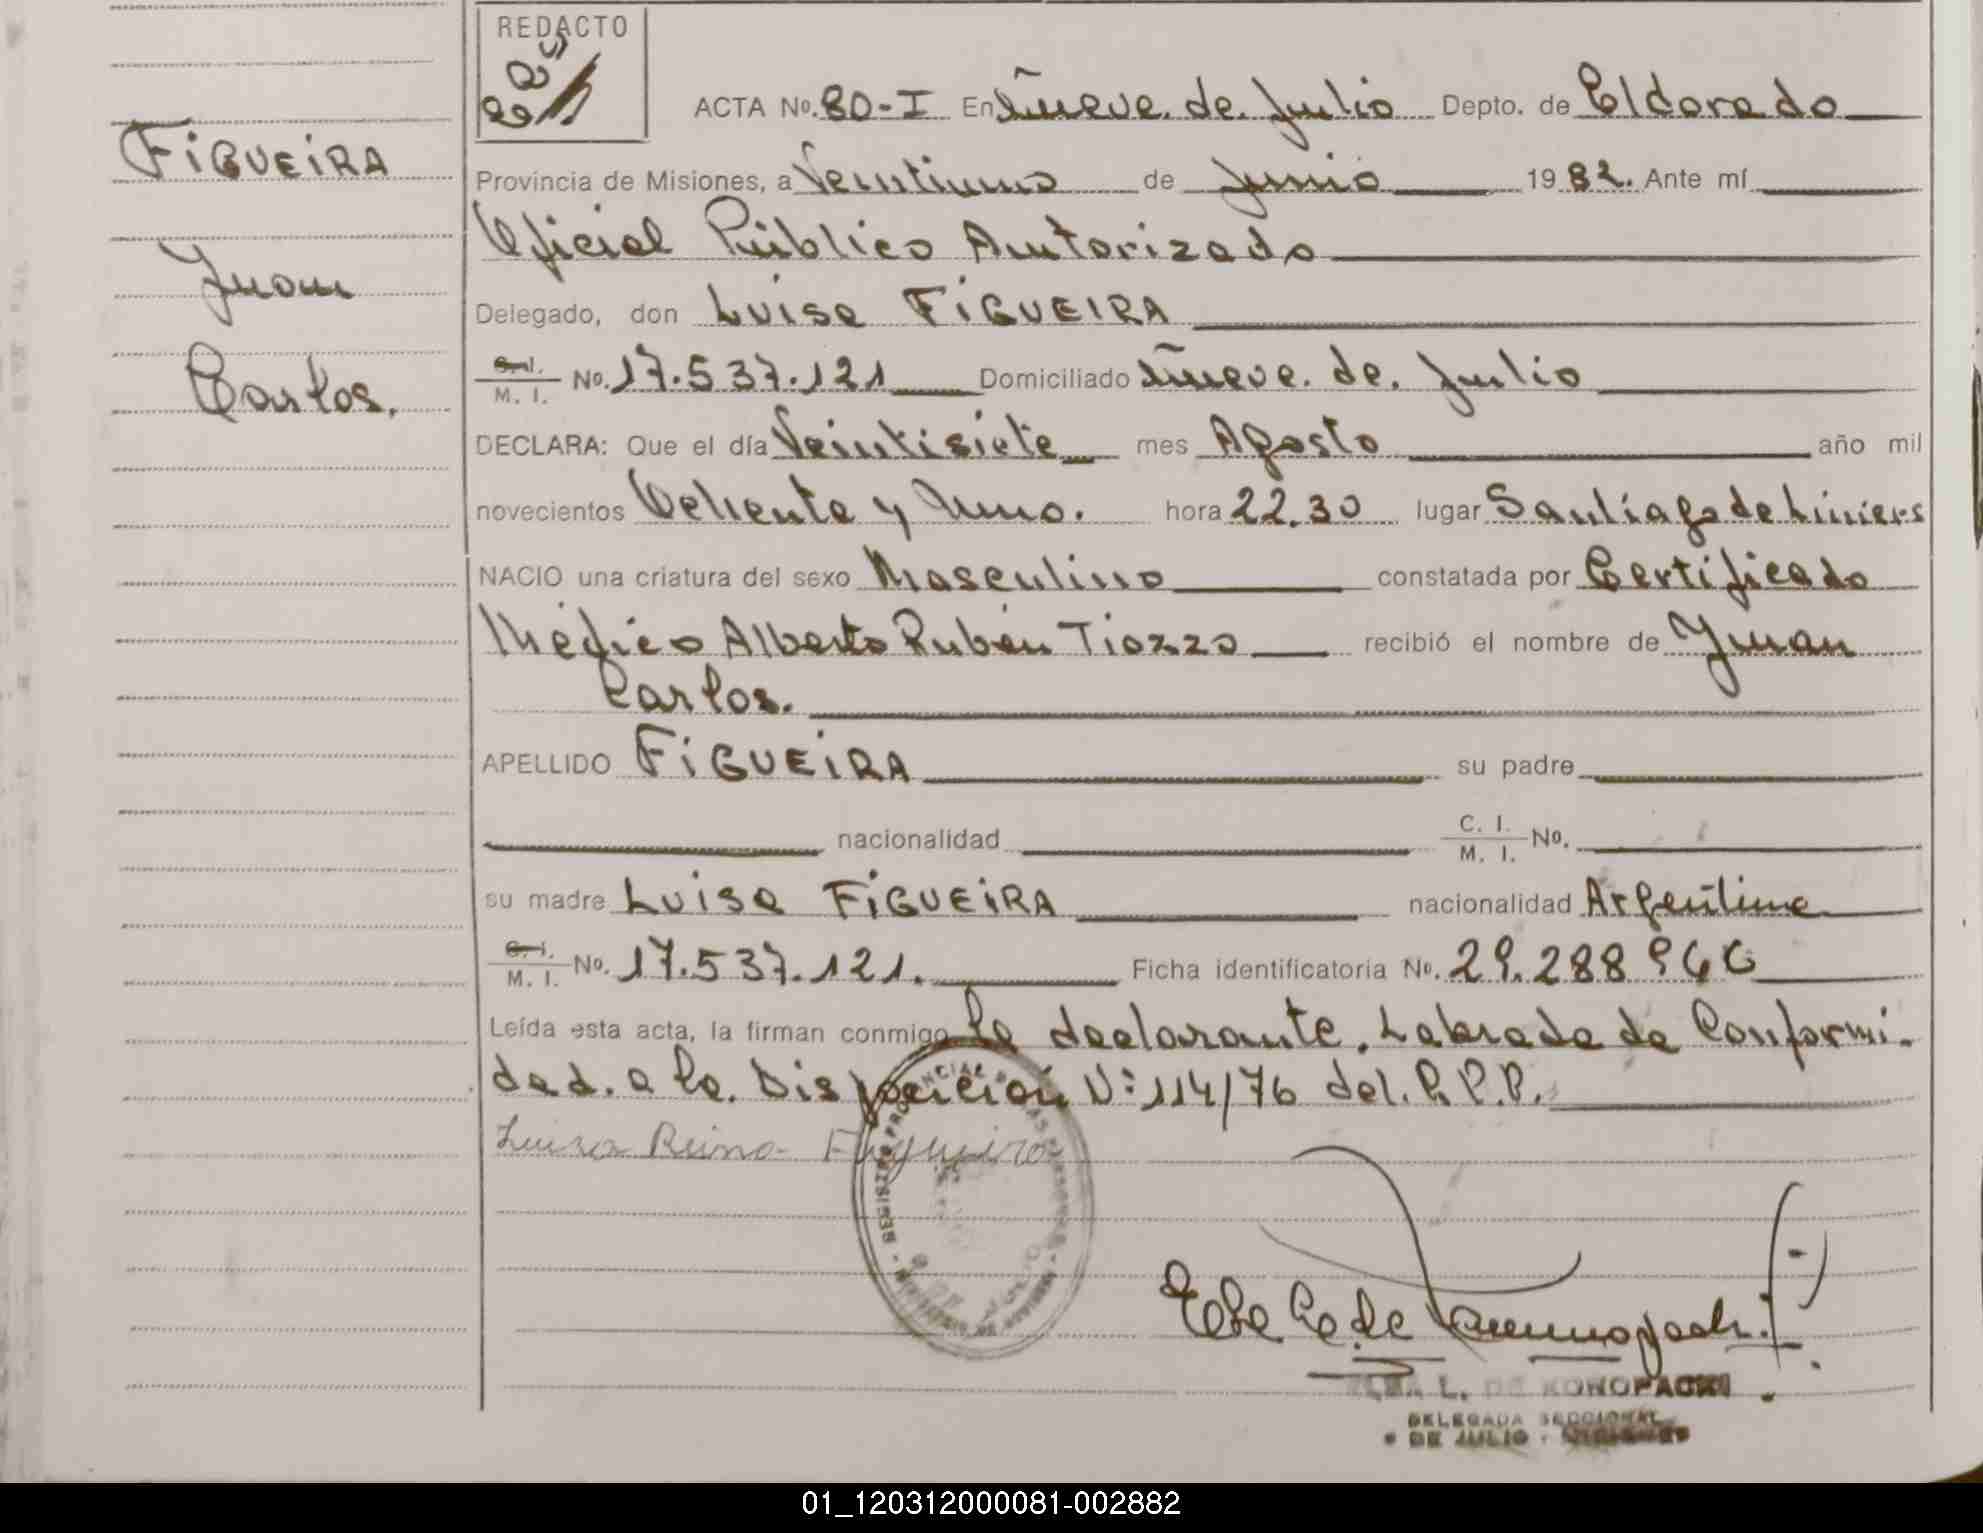 REDACTO
ACTA No. 80-I En Nueve de Julio Depto. de Eldorado
FIGUEIRA
Provincia de Misiones, a Veintiuno de Junio 1982. Ante mí
Oficial Público Autorizado
Juan
Delegado, don Luisa FIGUEIRA
Carlos.
C. I.
M. I. No. 17.537.121 Domiciliado Nueve de Julio
DECLARA: Que el día Veintisiete mes Agosto año mil
novecientos Ochenta y Uno. hora 22.30 lugar Santiago de Liniers
NACIO una criatura del sexo Masculino constatada por Certificado
Médico Alberto Rubén Tiozzo recibió el nombre de Juan
Carlos.
APELLIDO FIGUEIRA su padre
nacionalidad C. I.
M. I. No.
su madre Luisa FIGUEIRA nacionalidad Argentina
C. I.
M. I. No. 17.537.121. Ficha identificatoria No. 29.288966
Leída esta acta, la firman conmigo la declarante. Labrada de Conformi-
dad a la Disposición Nº 114/76 del R.P.P.
Luisa Reina Figueira
L. DE KONOPACKI
DELEGADA SECCIONAL
9 DE JULIO - MISIONES
01_120312000081-002882